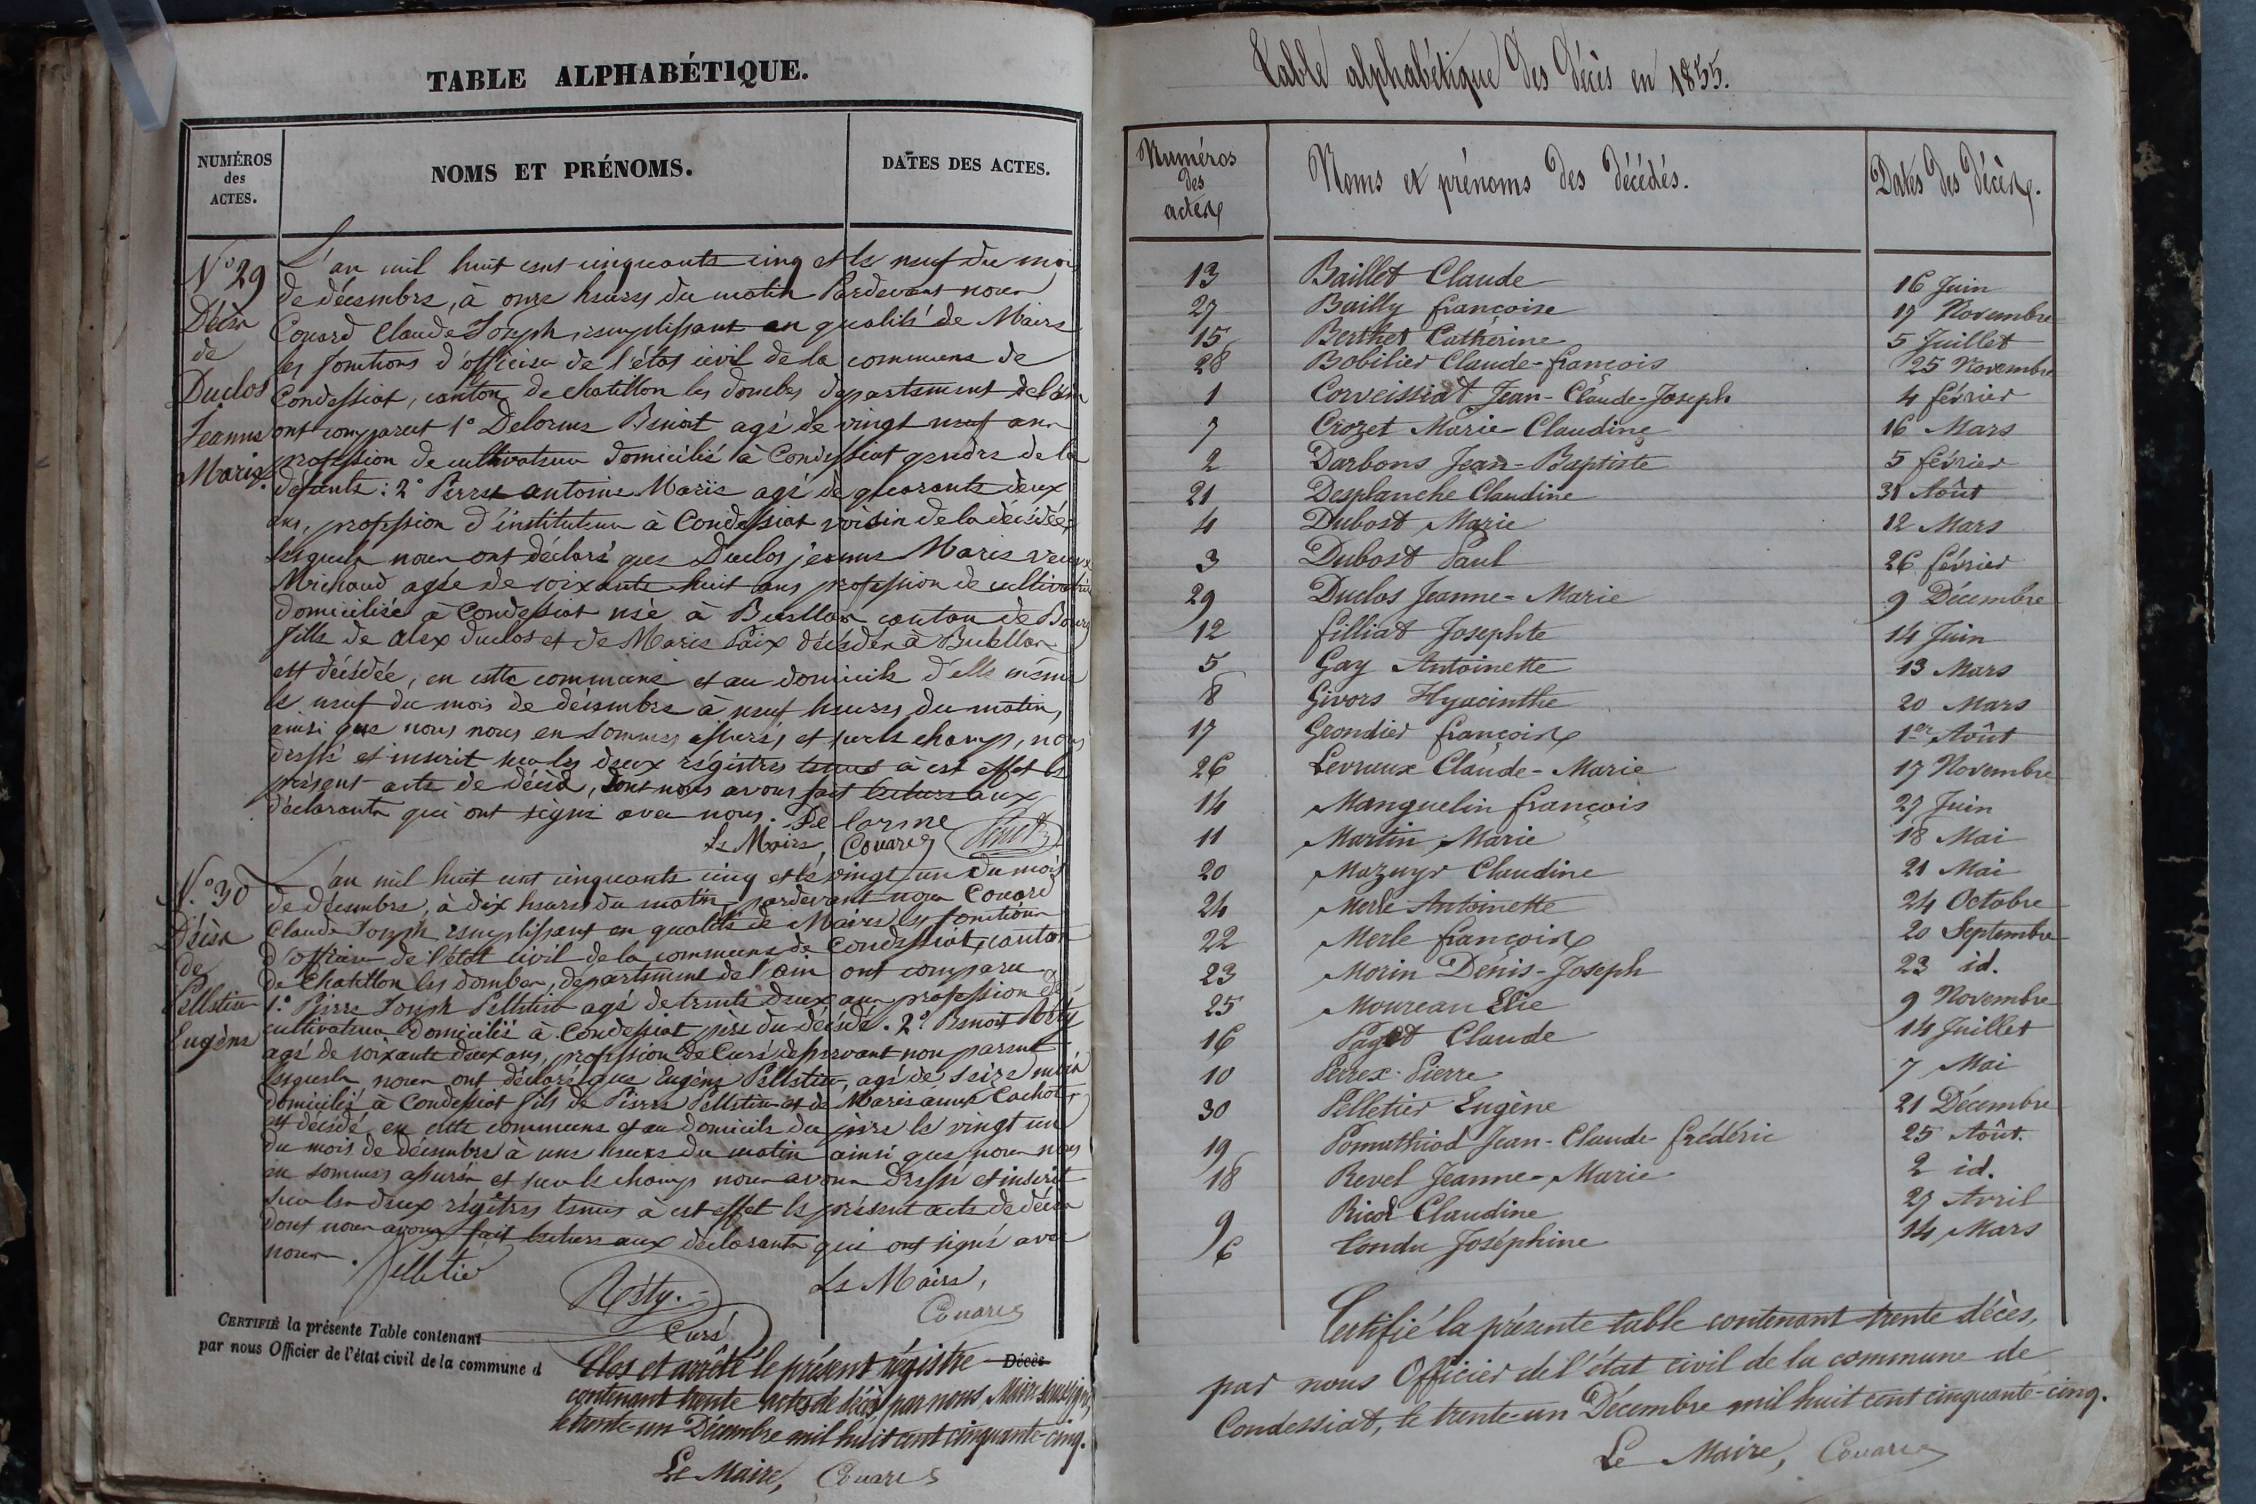 TABLE ALPHABÉTIQUE.
NUMÉROS
des
ACTES.
NOMS ET PRÉNOMS.
DATES DES ACTES.
N° 29
Décès
de
Duclos
Jeanne
Marie
L'an mil huit cent cinquante cinq et le neuf du mois
de décembre, à onze heures du matin Pardevant nous
Couard Claude Joseph, remplissant en qualité de Maire
les fonctions d'officier de l'état civil de la commune de
Condessiat, canton de chatillon les dombes département de l'ain
ont comparut 1° Delorme Benoit agé de vingt neuf ans
profession de cultivateur domicilié à Condessiat gendre de la
défunte : 2° Perret antoine Marie agé de quarante deux
ans, profession d'instituteur à Condessiat voisin de la décédée
lesquels nous ont déclaré que Duclos jeanne Marie veuve
Michaud agée de soixante huit ans profession de cultivatrice
domiciliée à Condessiat née à Buellas canton de Bourg
fille de alex duclos et de Marie Paix décédés à Buellas
est décédée, en cette commune et au domicile d'elle même
le neuf du mois de décembre à neuf heures du matin,
ainsi que nous nous en sommes assurés, et sur le champ, nous
dressé et inscrit sur les deux régistres tenus à cet effet le
présent acte de décès, dont nous avons fait lecture aux
déclarants qui ont signé avec nous. Delorme
Le Maire, Couard Perret
N.° 30
Décès
de
Pelletier
Eugène
L'an mil huit cent cinquante cinq et le vingt un du mois
de décembre, à dix heures du matin, pardevant nous Couard
Claude Joseph remplissant en qualité de Maire les fonctions
d'officier de l'état civil de la commune de Condessiat, canton
de Chatillon les dombes, département de l'ain ont comparu
1.° Pierre Joseph Pelletier agé de trente deux ans profession de
cultivateur domicilié à Condessiat père du décédé. 2° Benoit Réty
agé de soixante deux ans, profession de Curé desservant non parent
lesquels nous ont déclaré que Eugène Pelletier, agé de seize mois
domicilié à Condessiat fils de Pierre Pelletier et de Marie anne Cachot,
est décédé en cette commune et au domicile du père le vingt un
du mois de décembre à une heure du matin ainsi que nous nous
en sommes assurés et sur le champ nous avons dressé et inscrit
sur les deux régistres tenus à cet effet le présent acte de décès
dont nous avons fait lecture aux déclarants qui ont signé avec
nous. Pelletier
Réty.
Curé
Le Maire,
Couard
CERTIFIÉ la présente Table contenant
par nous Officier de l'état civil de la commune d
Clos et arrêté le présent régistre Décès
contenant trente actes de décès, par nous, Maire soussigné,
le trente-un Décembre mil huit cent cinquante-cinq.
Le Maire, Couard
Table alphabétique des décès en 1855.
Numéros
des
actes
Noms et prénoms des décédés.
Dates des décès.
13 Baillet Claude 16 Juin
27 Bailly françoise 17 Novembre
15 Berthet Cathérine 5 Juillet
28 Bobilier Claude-françois 25 Novembre
1 Corveissiat Jean-Claude-Joseph 4 février
7 Crozet Marie-Claudine 16 Mars
2 Darbons Jean-Baptiste 5 février
21 Desplanche Claudine 31 Août
4 Dubost Marie 12 Mars
3 Dubost Paul 26 février
29 Duclos Jeanne-Marie 9 Décembre
12 filliat Josephte 14 Juin
5 Gay Antoinette 13 Mars
8 Givors Hyacinthe 20 Mars
17 Grondier françois 1er Août
26 Levraux Claude-Marie 17 Novembre
14 Manguelin françois 27 Juin
11 Martin Marie 18 Mai
20 Mazuyr Claudine 21 Mai
24 Merle Antoinette 24 Octobre
22 Merle françois 20 Septembre
23 Morin Dénis-Joseph 23 id.
25 Moureau Elie 9 Novembre
16 Paget Claude 14 Juillet
10 Perrex Pierre 7 Mai
30 Pelletier Eugène 21 Décembre
19 Pomathiod Jean-Claude-frédéric 25 Août.
18 Revel Jeanne-Marie 2 id.
9 Ricol Claudine 27 Avril
6 Tondu Joséphine 14 Mars
Certifié la présente table contenant trente décès,
par nous Officier de l'état civil de la commune de
Condessiat, le trente-un Décembre mil huit cent cinquante-cinq.
Le Maire, Couard